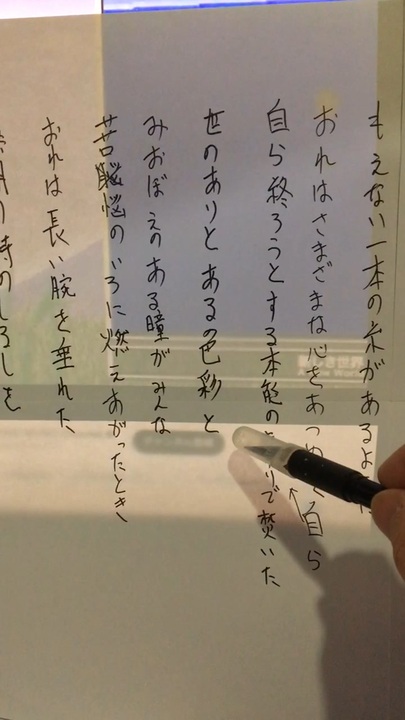 もえない一本の糸があるよ
おれはさまざまな心をあつ 自ら
自ら終ろうとする本能の りで焚いた
世のありとあるの色彩と
みおぼえのある瞳がみんな
苦悩のいろに燃えあがったとき
おれは長い腕を垂れた
時のしるしを